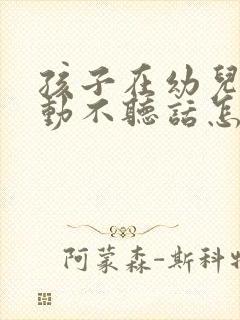 孩子在幼兒
動不聽話怎
阿蒙森-斯科特